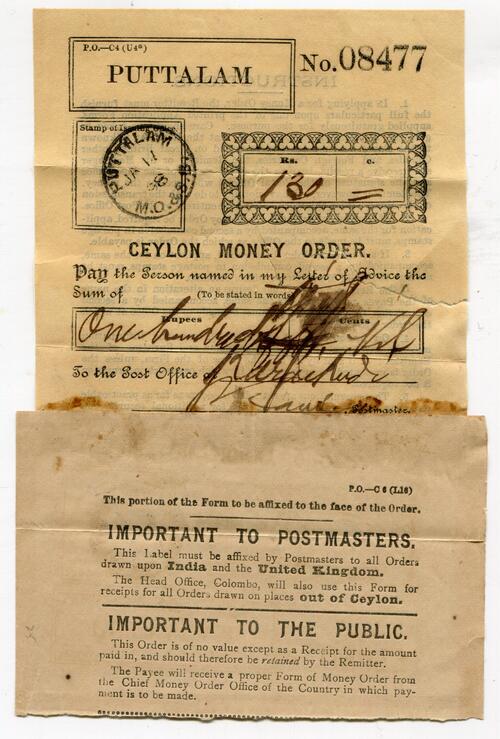 P.O.—C4 (U4*)
PUTTALAM
No. 08477
Stamp of Issuing
PUTTALAM
JA 17
98
M.O. & S.B.
Rs. c.
130 =
CEYLON MONEY ORDER.
Pay the Person named in my Letter of Advice the
Sum of (To be stated in words)
Rupees Cents
One hundred
To the Post Office of
Postmaster.
P.O.—C 6 (L16)
This portion of the Form to be affixed to the face of the Order.
IMPORTANT TO POSTMASTERS.
This Label must be affixed by Postmasters to all Orders
drawn upon India and the United Kingdom.
The Head Office, Colombo, will also use this Form for
receipts for all Orders drawn on places out of Ceylon.
IMPORTANT TO THE PUBLIC.
This Order is of no value except as a Receipt for the amount
paid in, and should therefore be retained by the Remitter.
The Payee will receive a proper Form of Money Order from
the Chief Money Order Office of the Country in which pay-
ment is to be made.